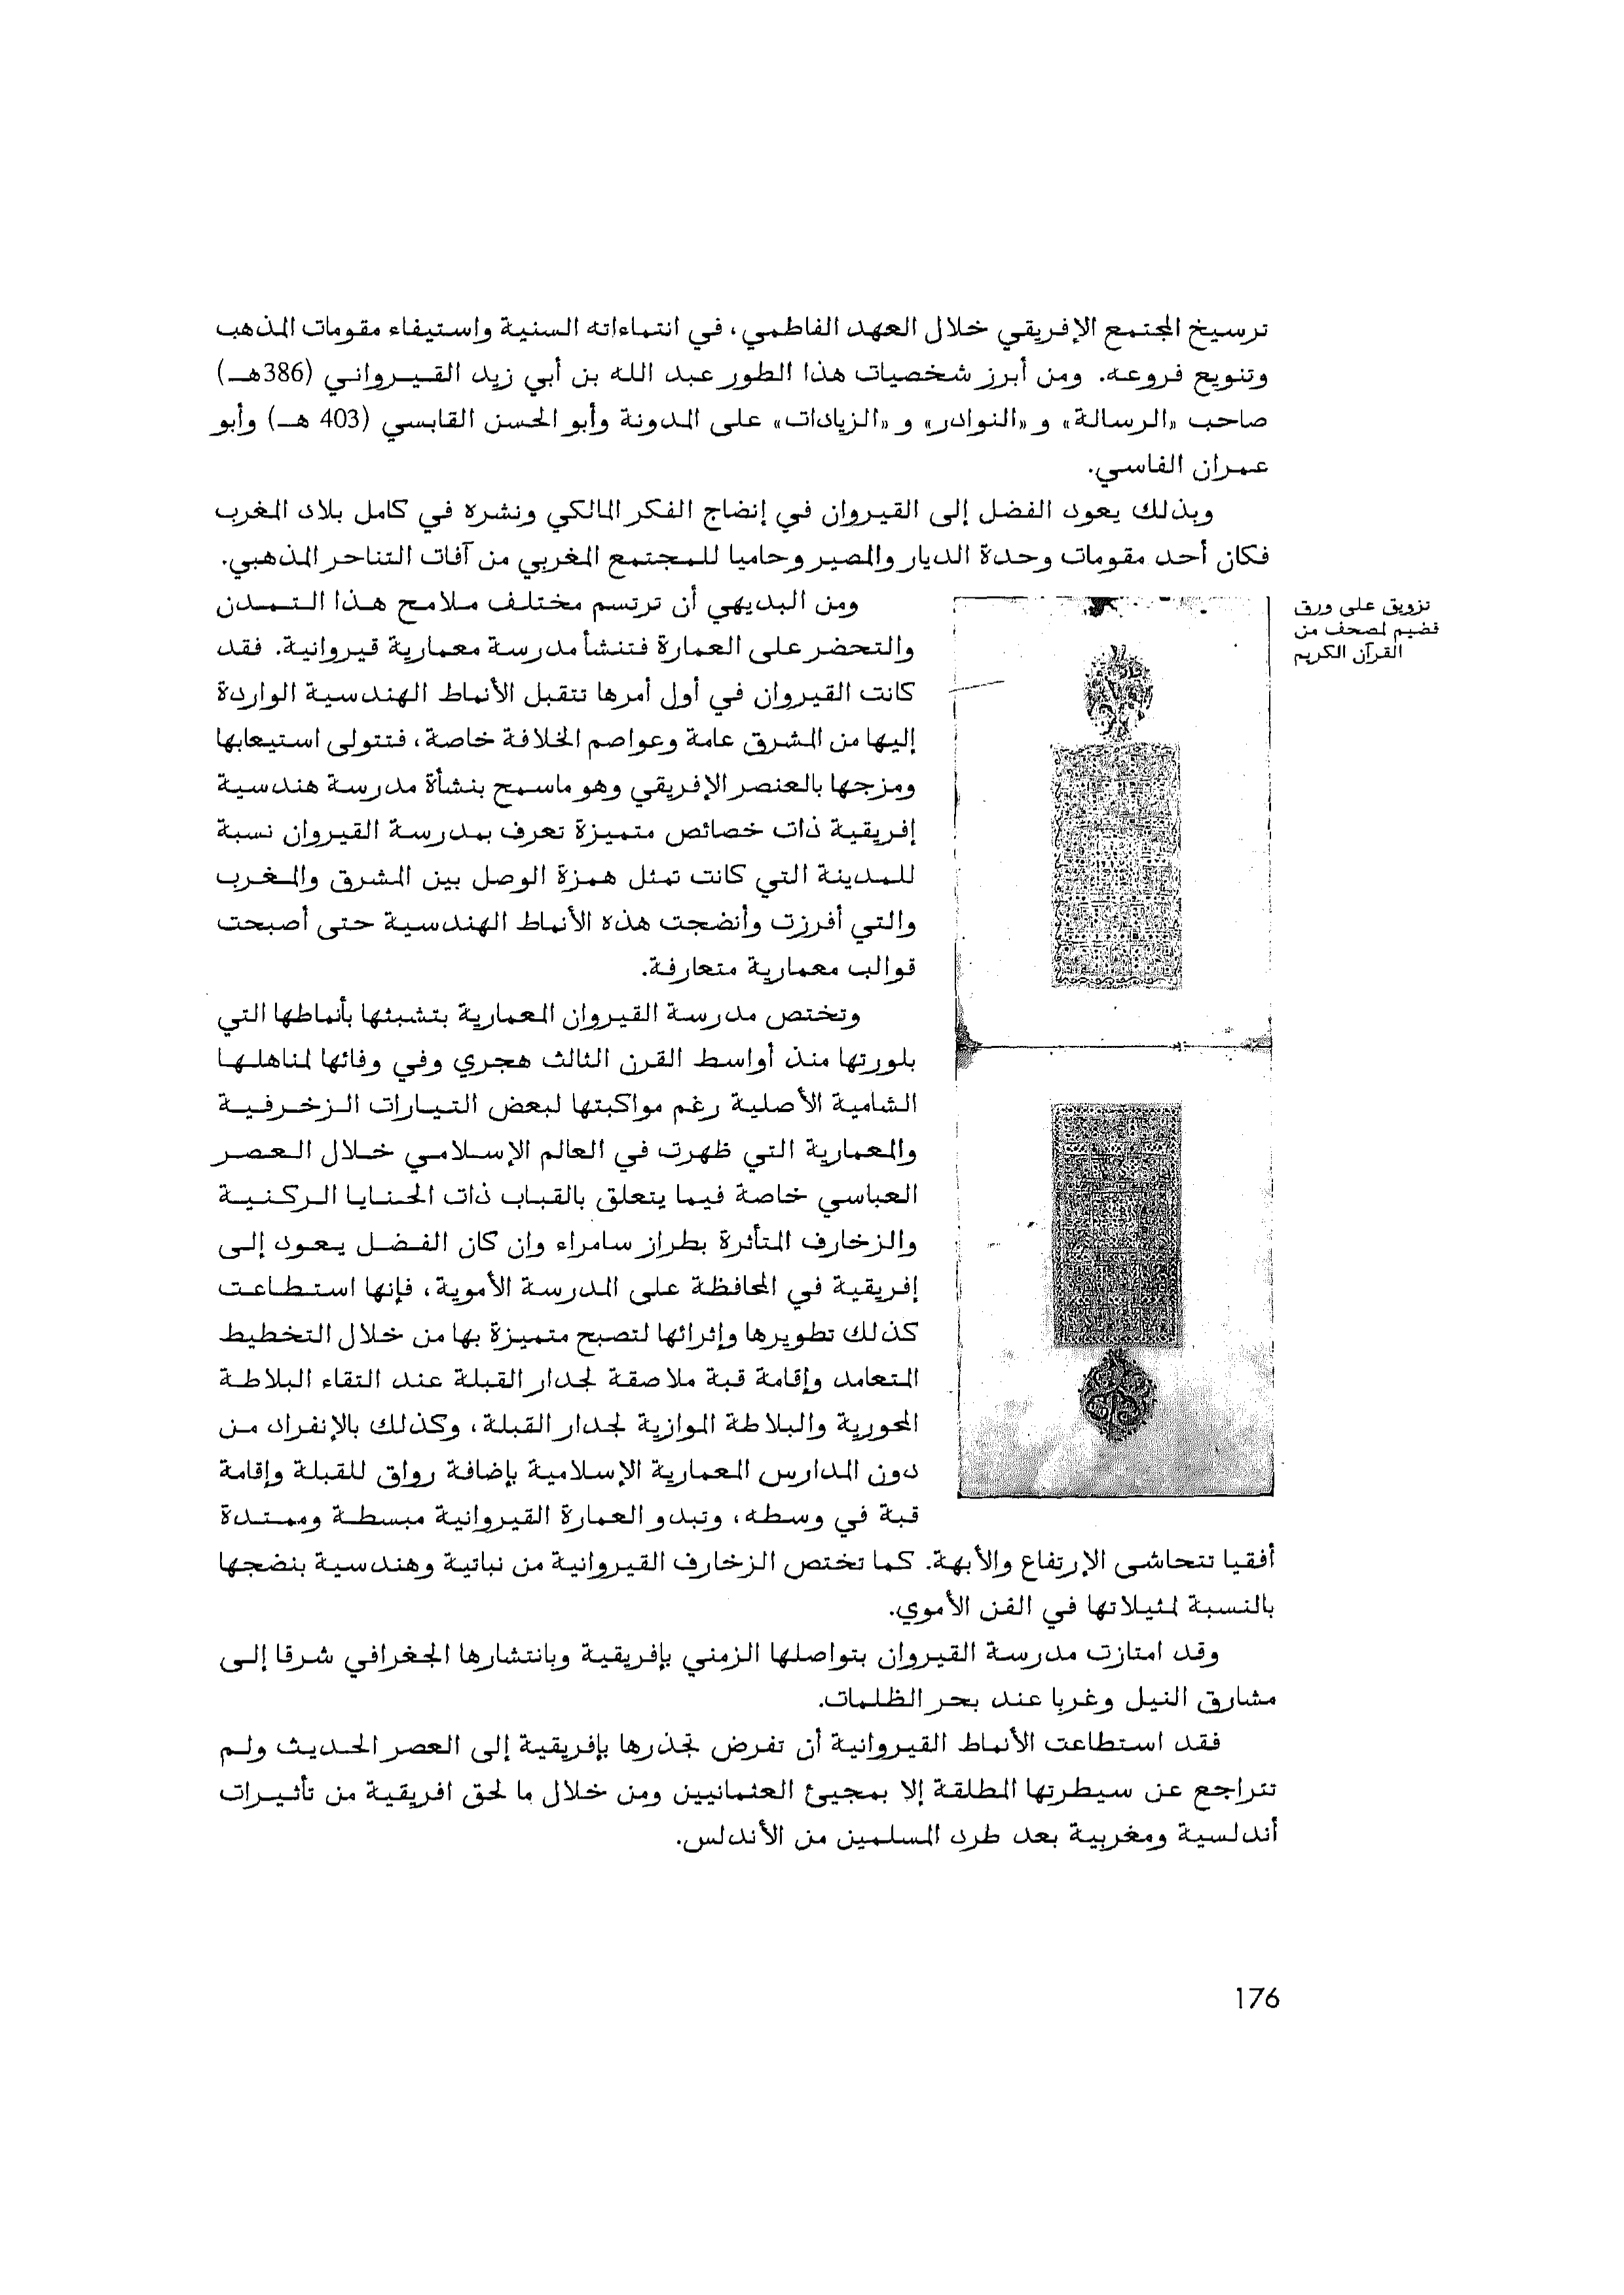 ترسيخ المجتمع الإفريقي خلال العهد الفاطمي، في انتماءاته السنية واستيفاء مقومات المذهب
وتنويع فروعه. ومن أبرز شخصيات هذا الطور عبد الله بن أبي زيد القيرواني (386هـ)
صاحب «الرسالة» و «النوادر» و «الزيادات» على المدونة وأبو الحسن القابسي (403 هـ) وأبو
عمران الفاسي.
وبذلك يعود الفضل إلى القيروان في إنضاج الفكر المالكي ونشره في كامل بلاد المغرب
فكان أحد مقومات وحدة الديار والمصير وحاميا للمجتمع المغربي من آفات التناحر المذهبي.
تزويق على ورق
قضيم لمصحف من
القرآن الكريم
ومن البديهي أن ترتسم مختلف ملامح هذا التمدن
والتحضر على العمارة فتنشأ مدرسة معمارية قيروانية. فقد
كانت القيروان في أول أمرها تتقبل الأنماط الهندسية الواردة
إليها من المشرق عامة وعواصم الخلافة خاصة، فتتولى استيعابها
ومزجها بالعنصر الإفريقي وهو ماسمح بنشأة مدرسة هندسية
إفريقية ذات خصائص متميزة تعرف بمدرسة القيروان نسبة
للمدينة التي كانت تمثل همزة الوصل بين المشرق والمغرب
والتي أفرزت وأنضجت هذه الأنماط الهندسية حتى أصبحت
قوالب معمارية متعارفة.
وتختص مدرسة القيروان المعمارية بتشبثها بأنماطها التي
بلورتها منذ أواسط القرن الثالث هجري وفي وفائها لمناهلها
الشامية الأصلية رغم مواكبتها لبعض التيارات الزخرفية
والمعمارية التي ظهرت في العالم الإسلامي خلال العصر
العباسي خاصة فيما يتعلق بالقباب ذات الحنايا الركنية
والزخارف المتأثرة بطراز سامراء وإن كان الفضل يعود إلى
إفريقية في المحافظة على المدرسة الأموية، فإنها استطاعت
كذلك تطويرها وإثرائها لتصبح متميزة بها من خلال التخطيط
المتعامد وإقامة قبة ملاصقة لجدار القبلة عند التقاء البلاطة
المحورية والبلاطة الموازية لجدار القبلة، وكذلك بالإنفراد من
دون المدارس المعمارية الإسلامية بإضافة رواق للقبلة وإقامة
قبة في وسطه، وتبدو العمارة القيروانية مبسطة وممتدة
أفقيا تتحاشى الإرتفاع والأبهة. كما تختص الزخارف القيروانية من نباتية وهندسية بنضجها
بالنسبة لمثيلاتها في الفن الأموي.
وقد امتازت مدرسة القيروان بتواصلها الزمني بإفريقية وبانتشارها الجغرافي شرقا إلى
مشارق النيل وغربا عند بحر الظلمات.
فقد استطاعت الأنماط القيروانية أن تفرض تجذرها بإفريقية إلى العصر الحديث ولم
تتراجع عن سيطرتها المطلقة إلا بمجيئ العثمانيين ومن خلال ما لحق افريقية من تأثيرات
أندلسية ومغربية بعد طرد المسلمين من الأندلس.
176